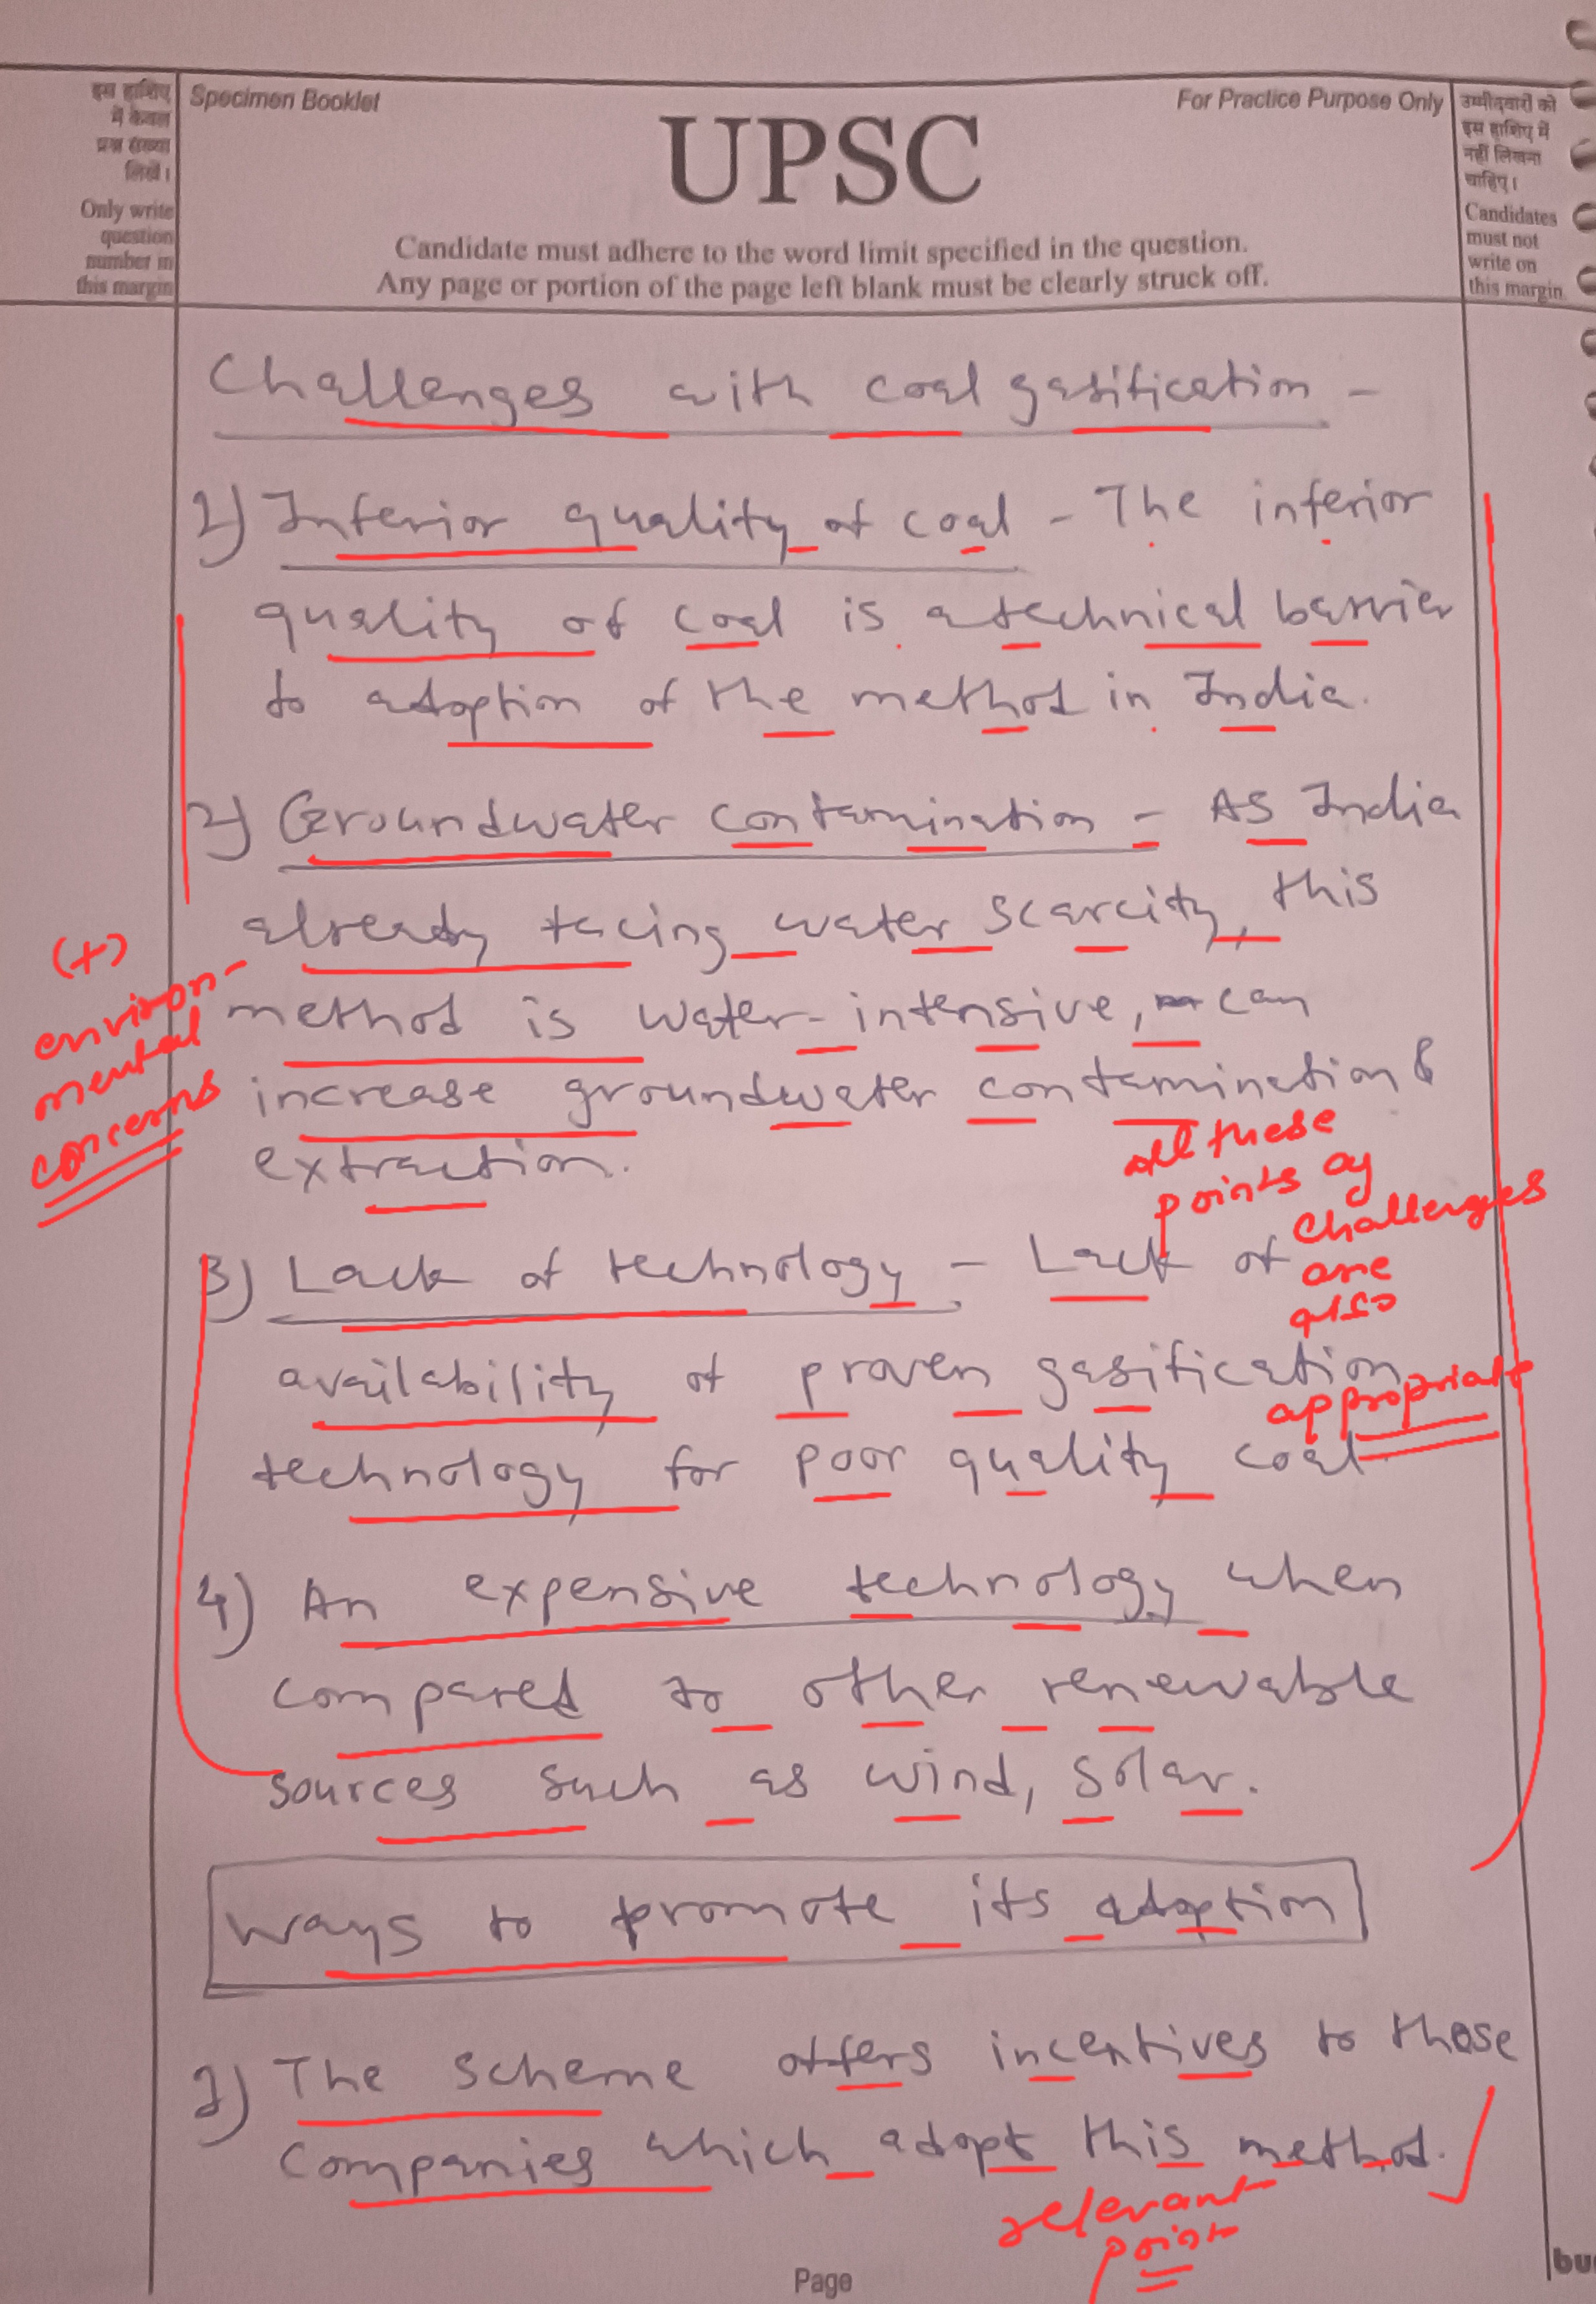 इस हाशिए
में केवल
प्रश्न संख्या
लिखें।
Only write
question
number in
this margin
Specimen Booklet
For Practice Purpose Only
UPSC
Candidate must adhere to the word limit specified in the question.
Any page or portion of the page left blank must be clearly struck off.
उम्मीदवारों को
इस हाशिए में
नहीं लिखना
चाहिए।
Candidates
must not
write on
this margin
Challenges with coal gasification -
1) Inferior quality of coal - The inferior
quality of coal is a technical barrier
to adoption of the method in India.
2) Groundwater contamination - As India
already facing water scarcity, this
method is water-intensive, can
increase groundwater contamination &
extraction.
(+)
environ-
mental
concerns
all these
points of
challenges
are
also
appropriate
3) Lack of technology - Lack of
availability of proven gasification
technology for poor quality coal.
4) An expensive technology when
compared to other renewable
sources such as wind, solar.
Ways to promote its adoption
1) The scheme offers incentives to those
companies which adopt this method.
relevant
point
Page